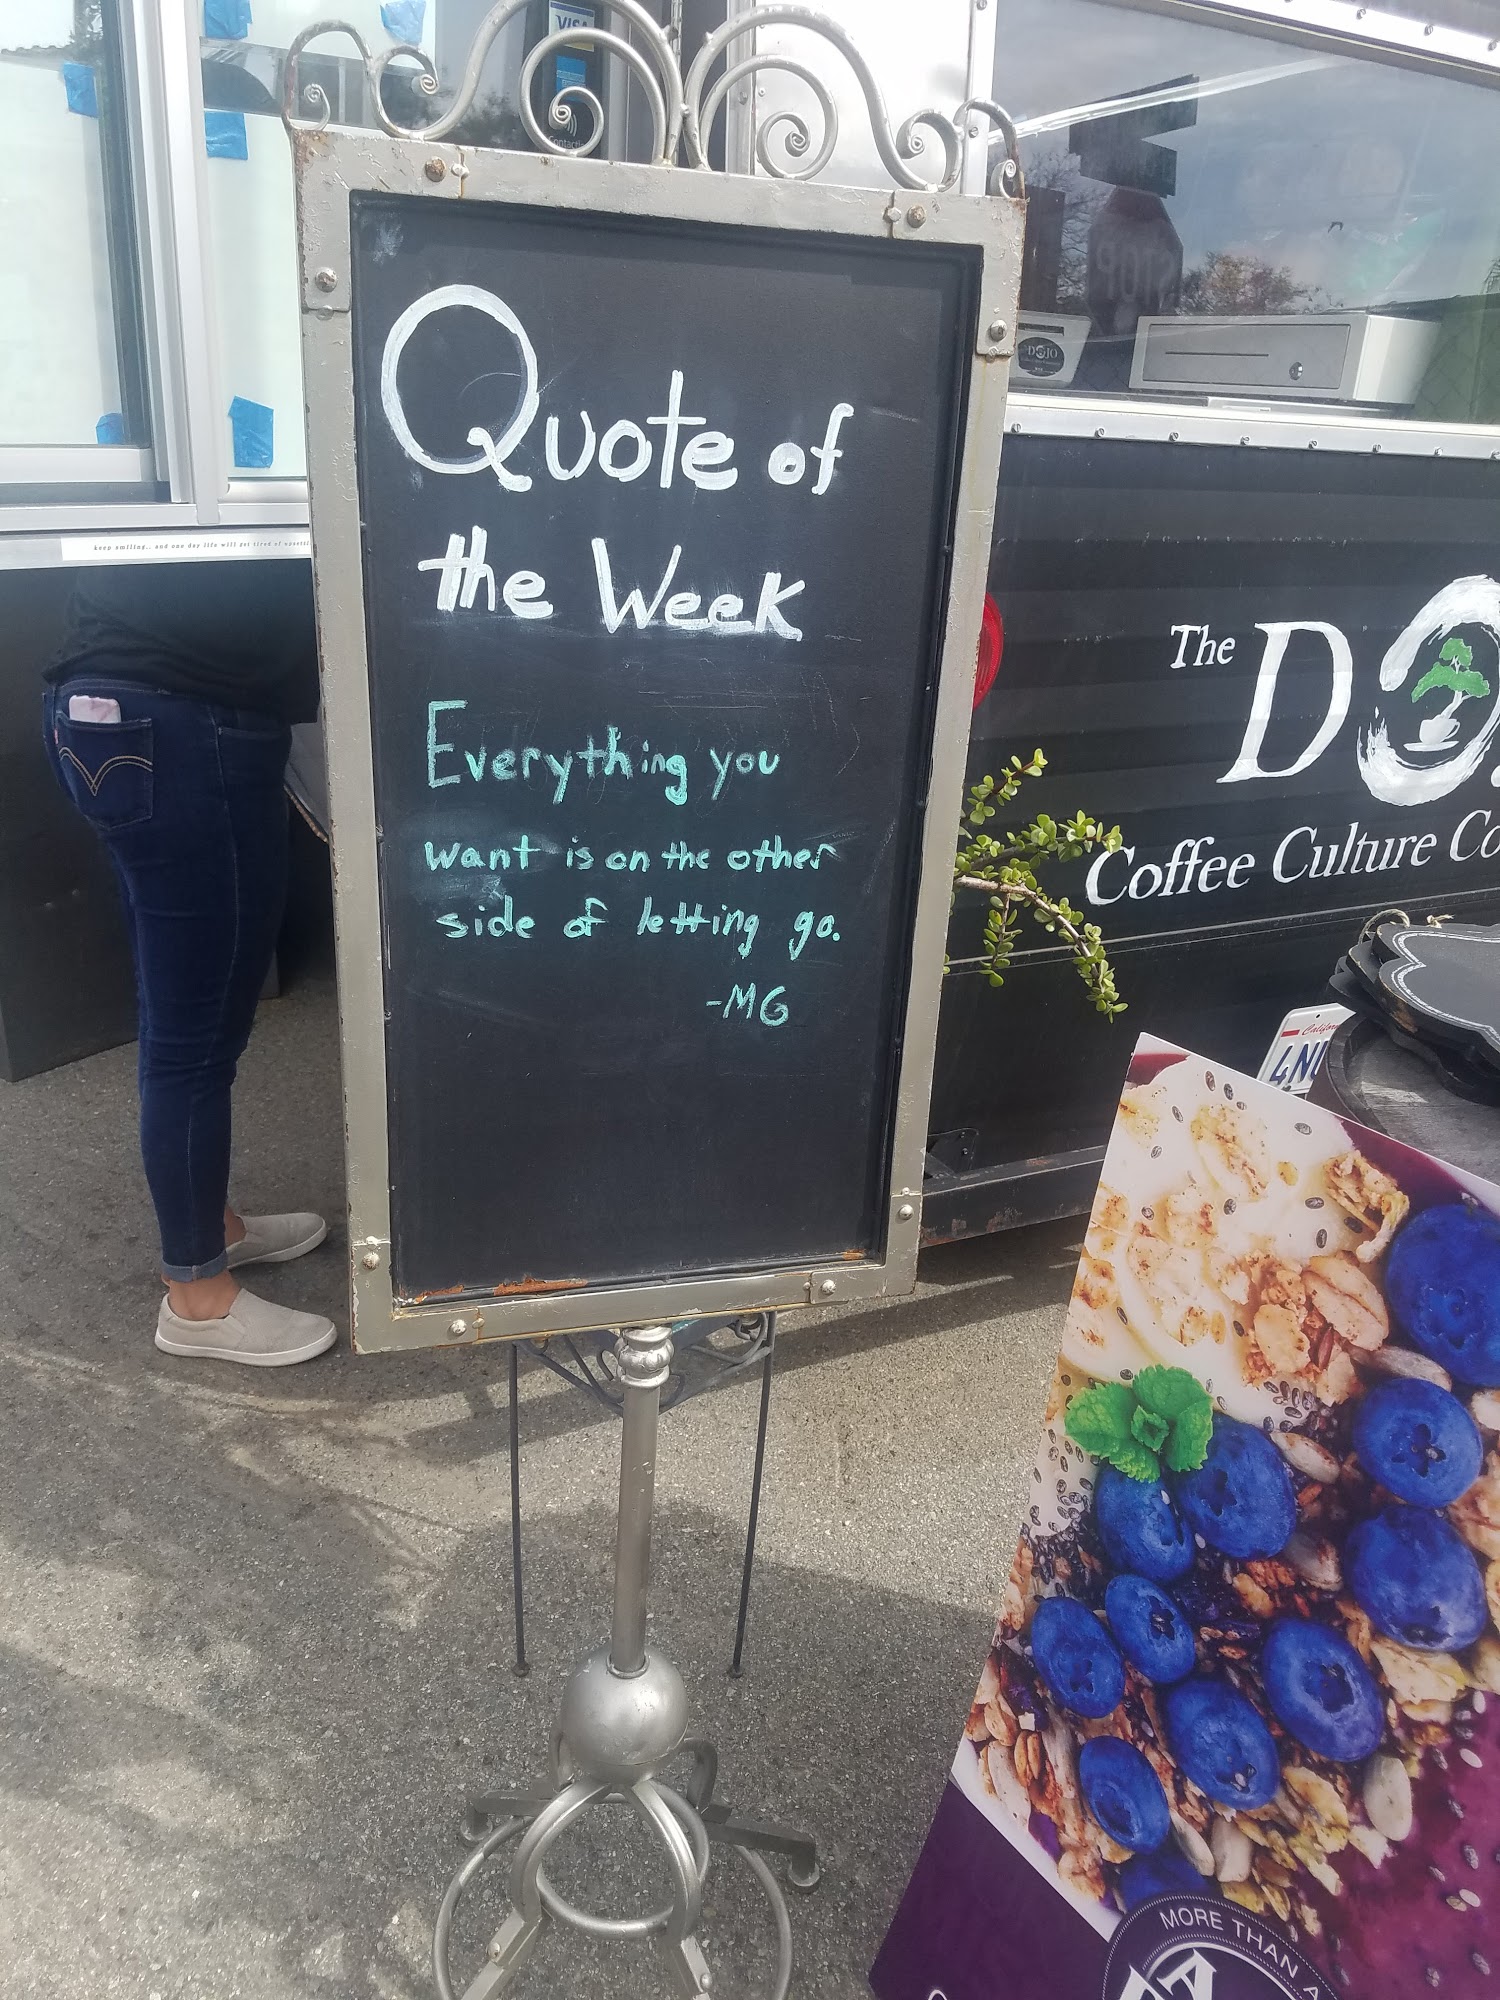 VISA
STOP
DOJO
Quote of
the Week
Everything you
want is on the other
side of letting go.
-MG
keep smiling.. and one day life will get tired of
The
Coffee Culture Co
4N
MORE THAN A